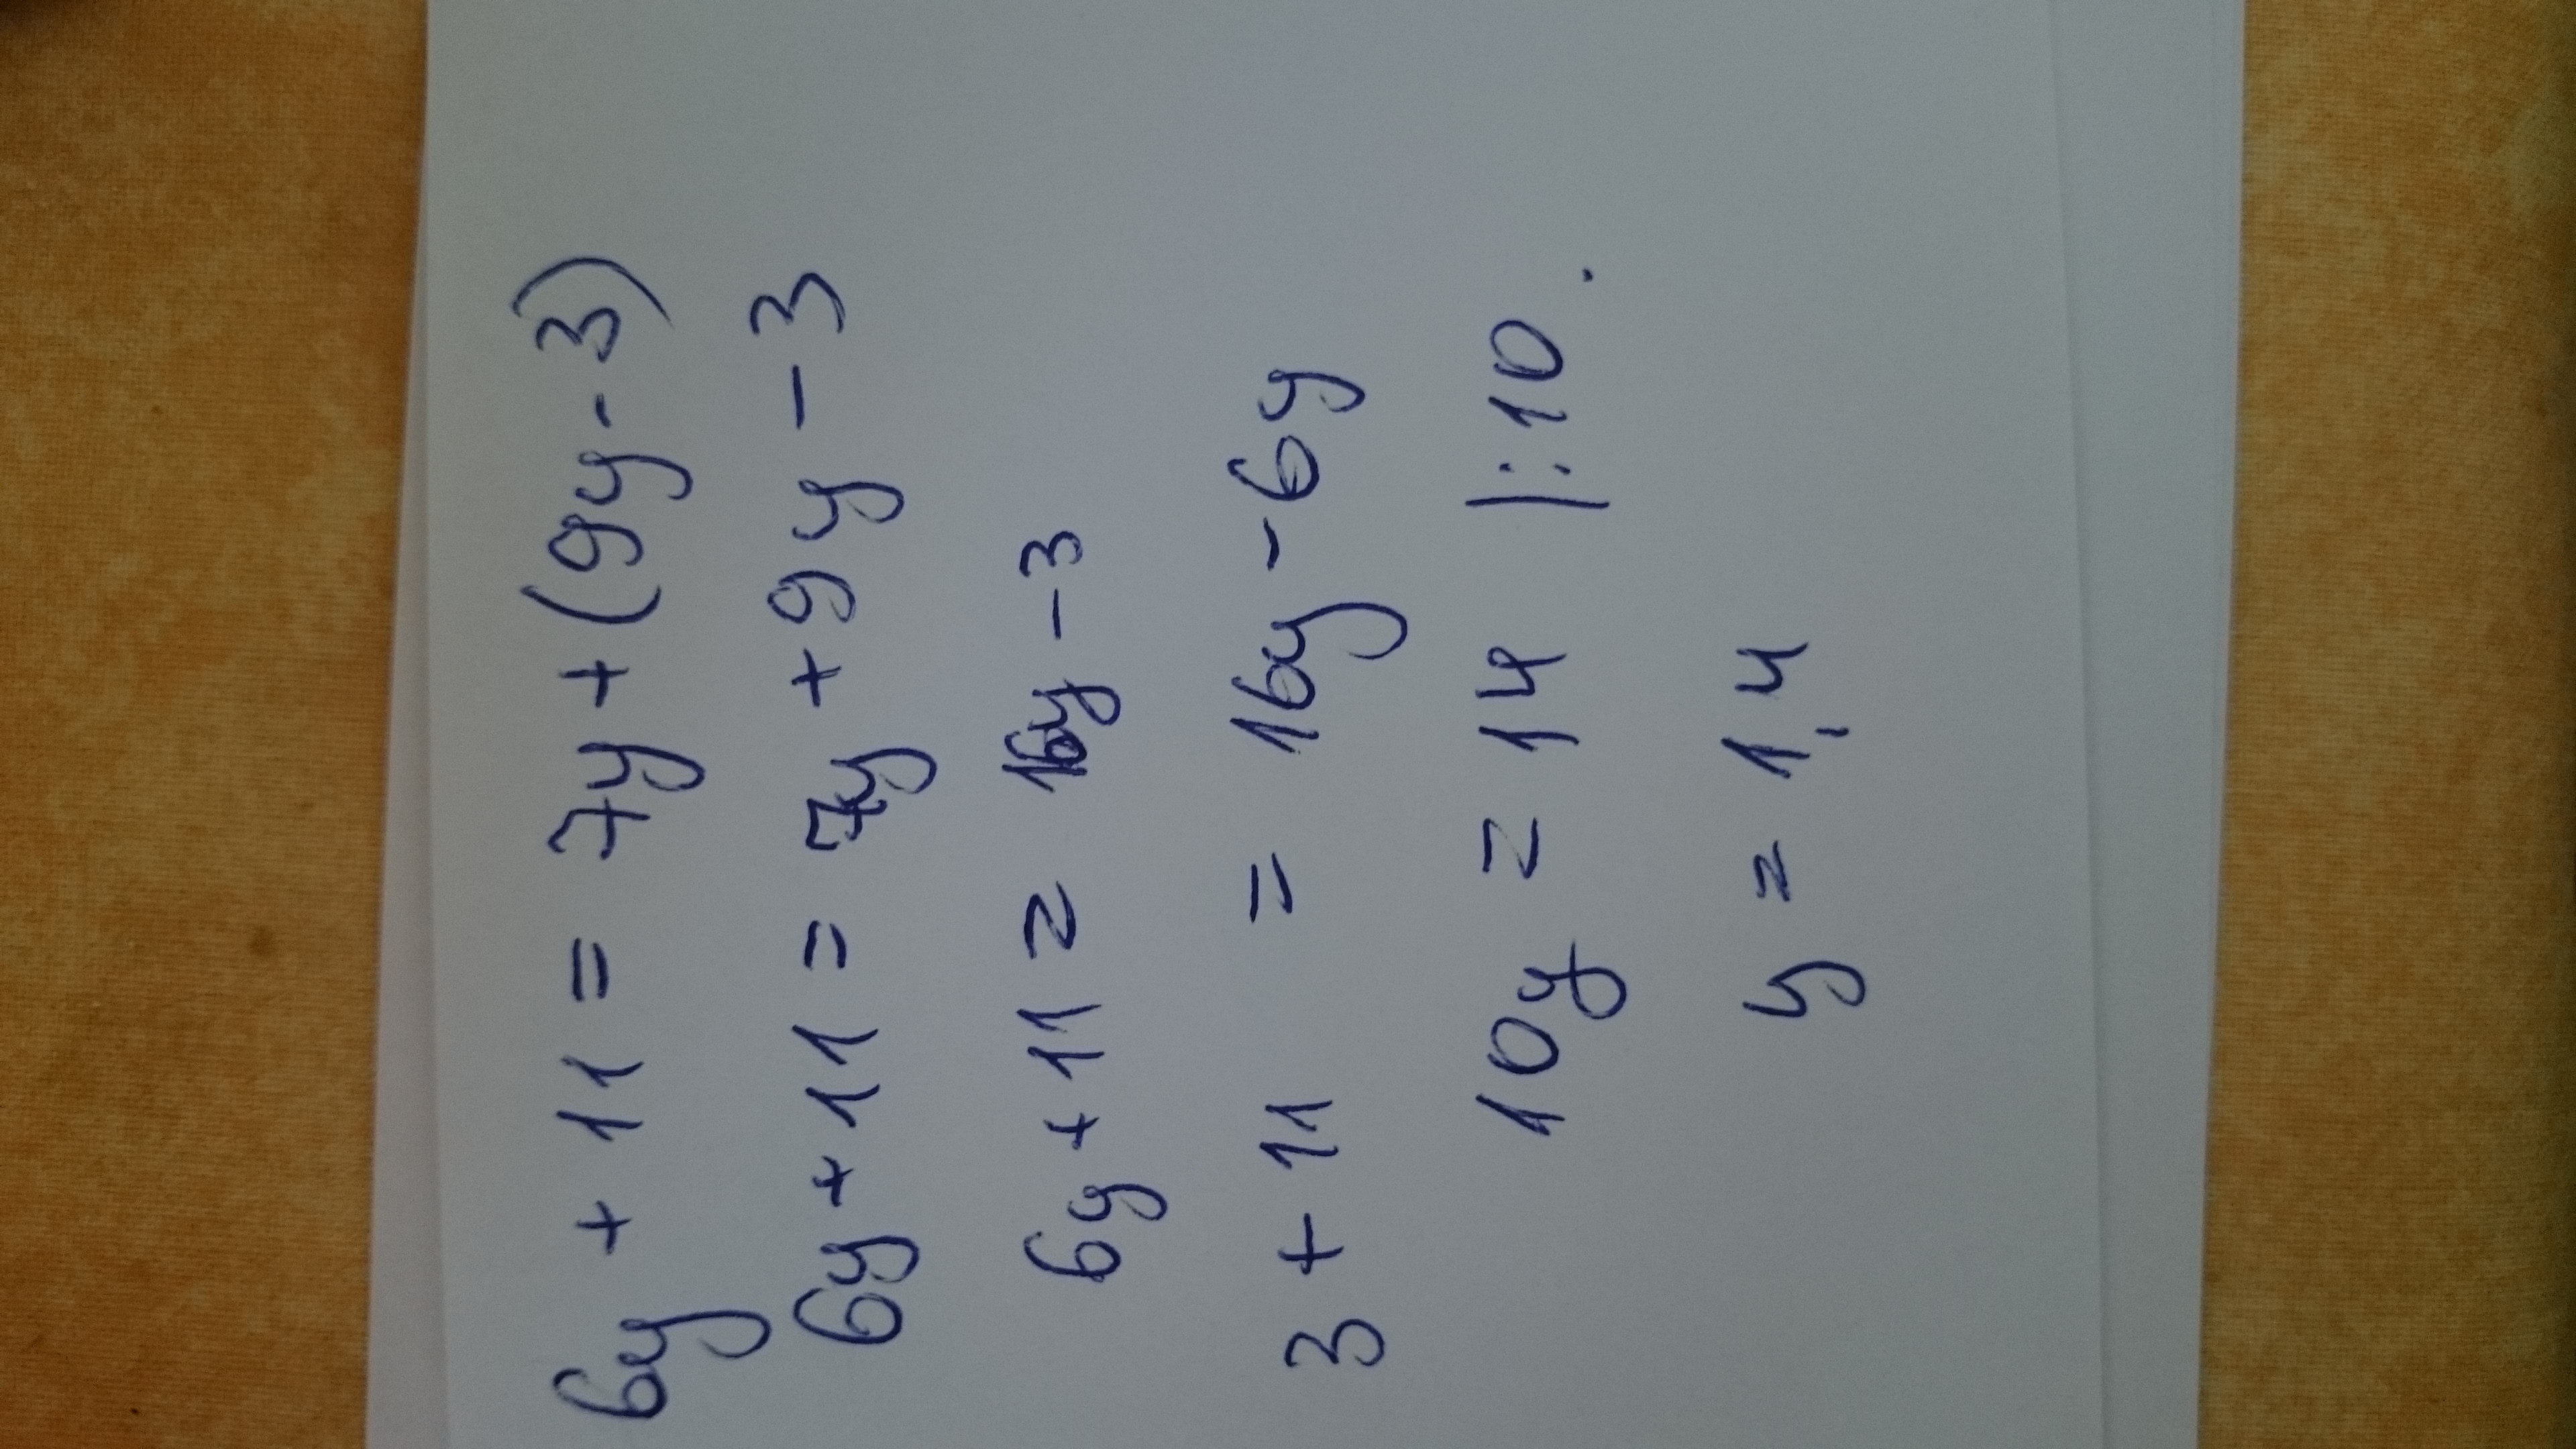 6y + 11 = 7y + (9y - 3)
6y + 11 = 7y + 9y - 3
6y + 11 = 16y - 3
3 + 11 = 16y - 6y
10y = 14 |:10.
y = 1,4